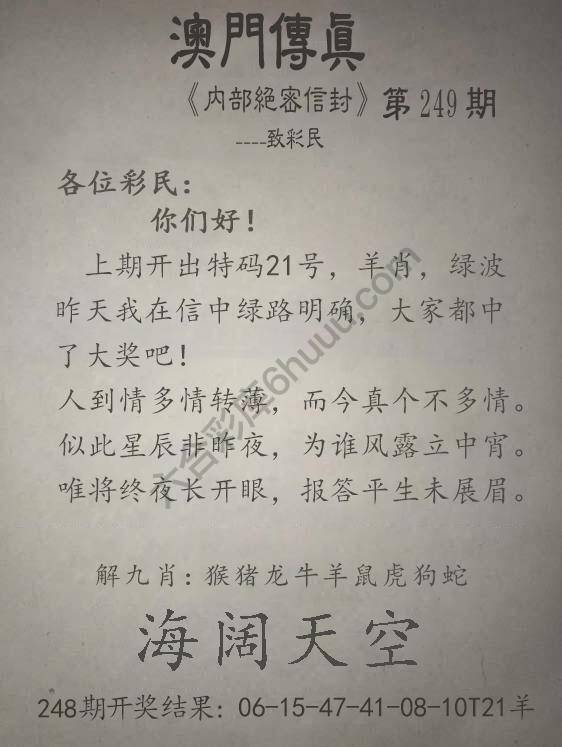 澳門傳眞
《内部絕密信封》第249期
----致彩民
各位彩民：
你们好！
上期开出特码21号，羊肖，绿波
昨天我在信中绿路明确，大家都中
了大奖吧！
人到情多情转薄，而今真个不多情。
似此星辰非昨夜，为谁风露立中宵。
唯将终夜长开眼，报答平生未展眉。
解九肖：猴猪龙牛羊鼠虎狗蛇
海阔天空
248期开奖结果：06-15-47-41-08-10T21羊
六合彩库6huuu.com